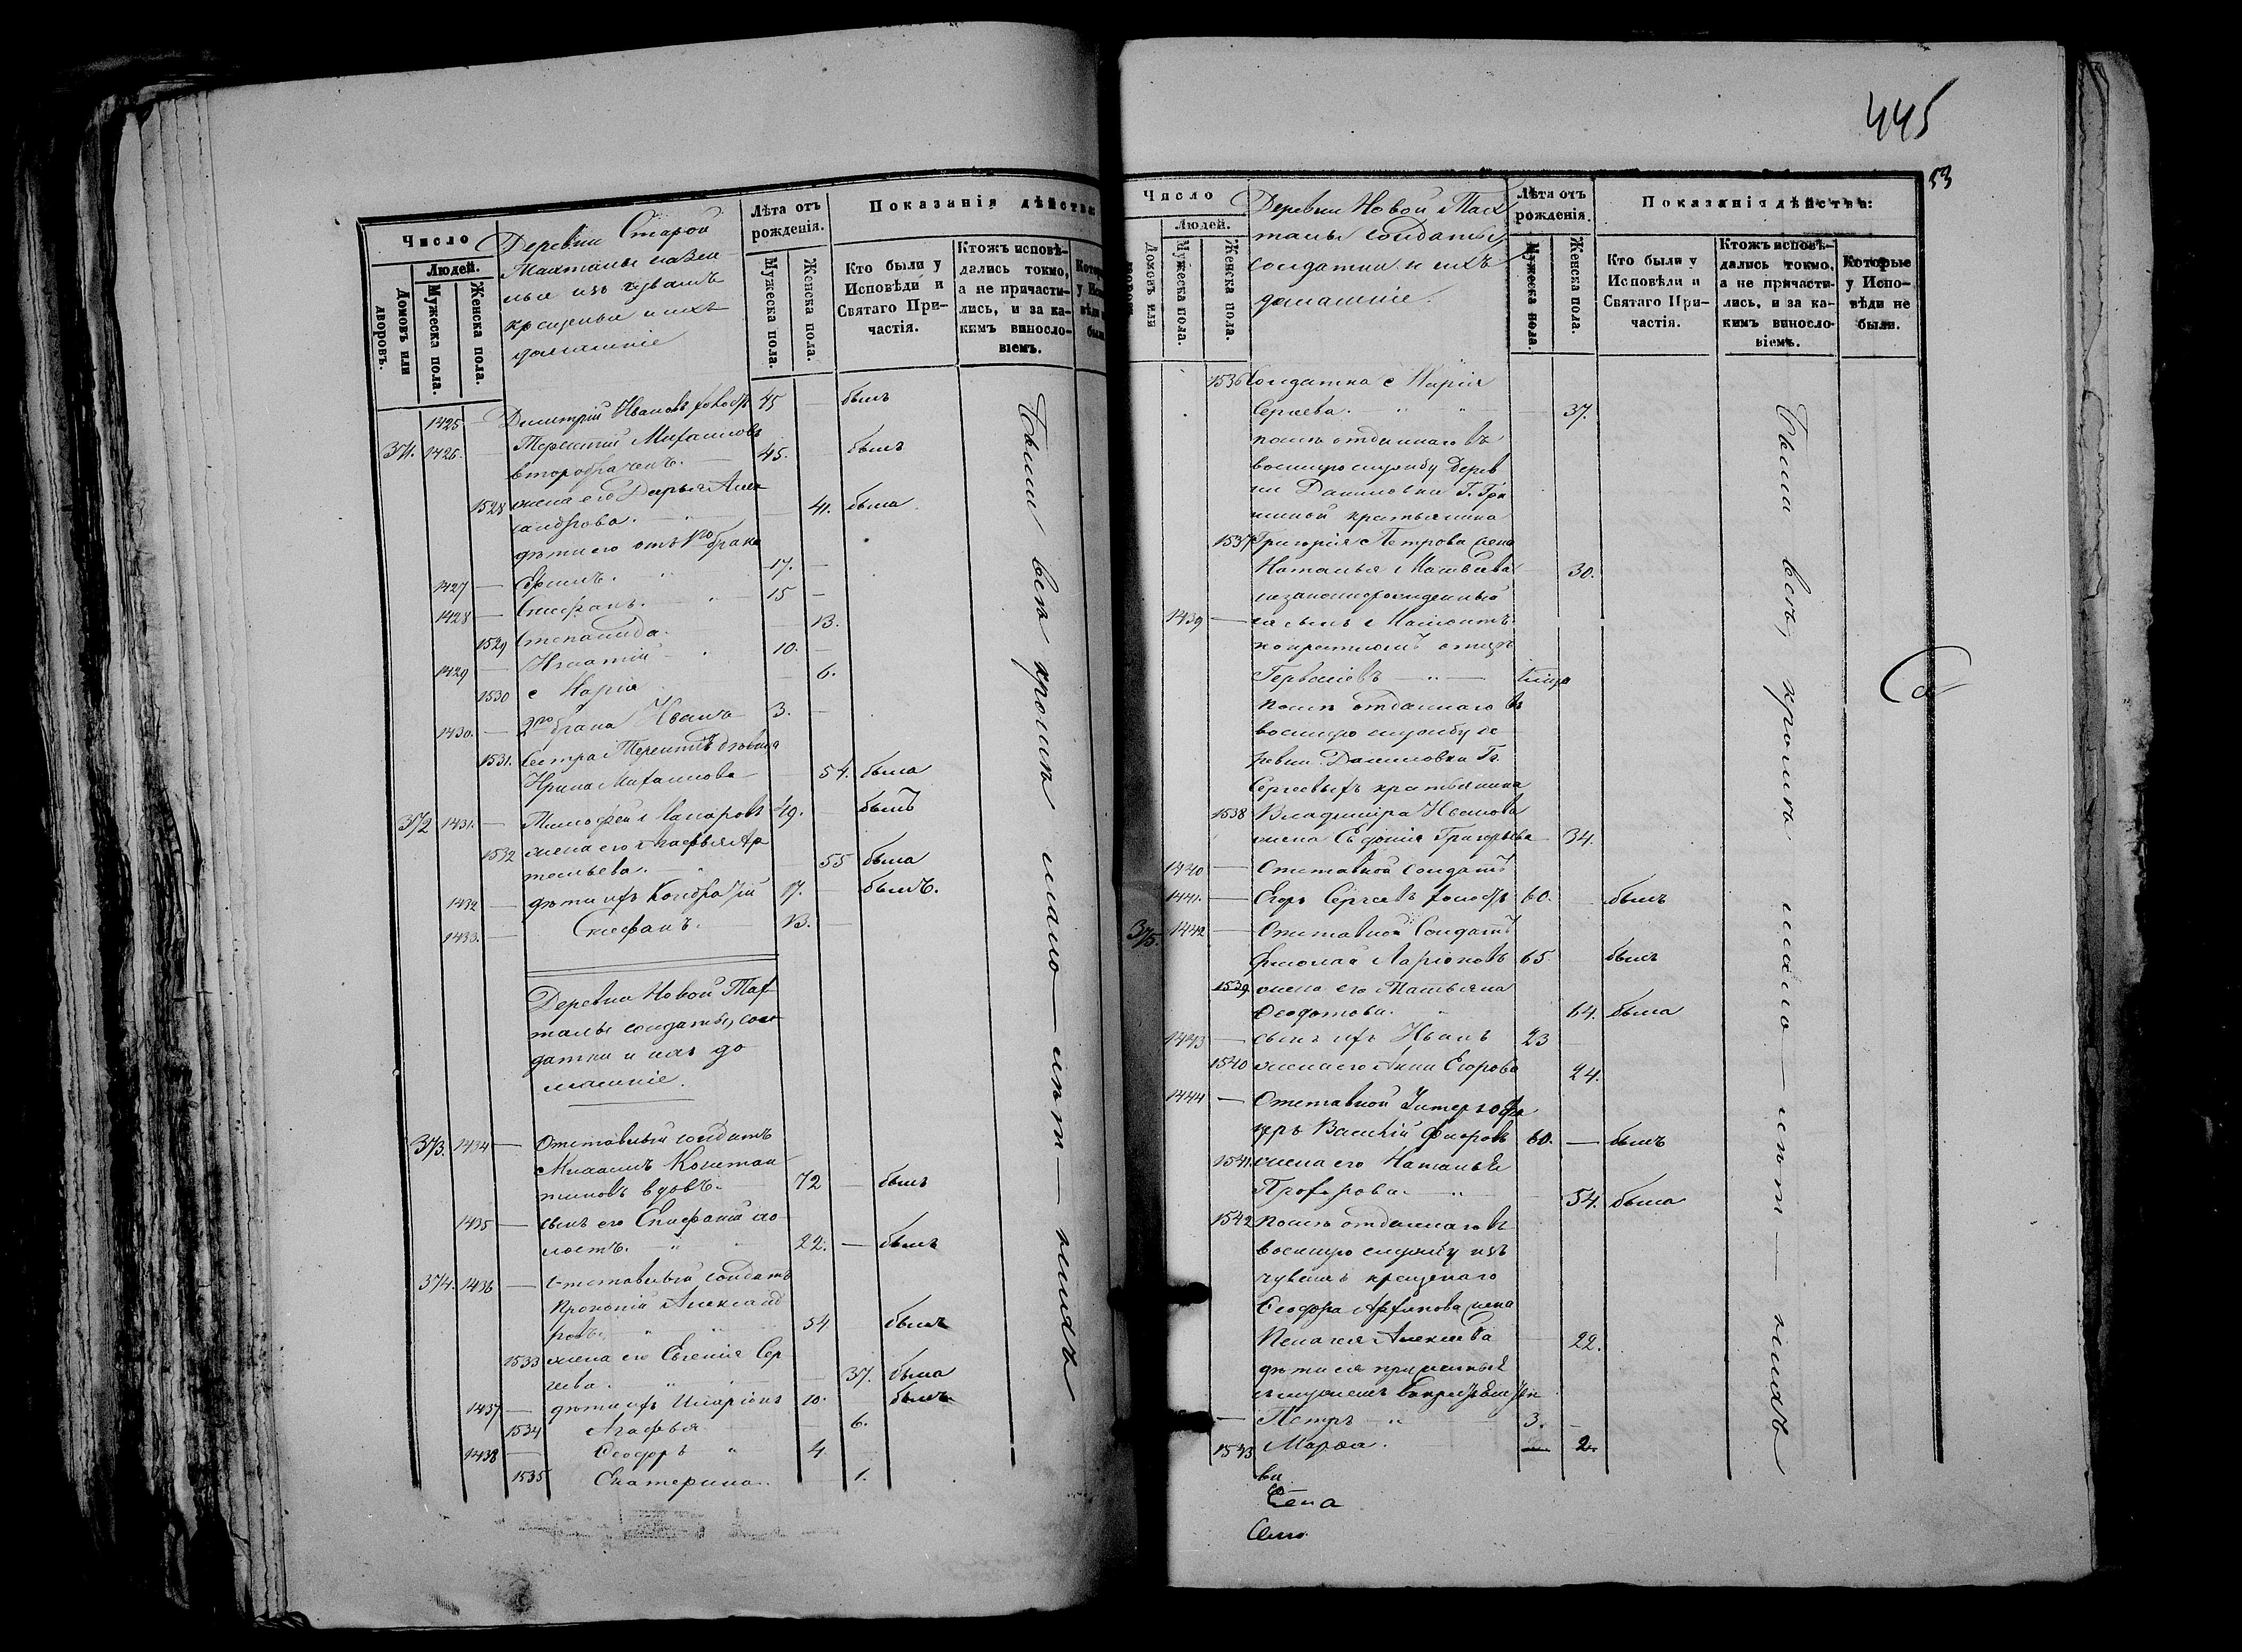 Число
Людей.
Домовъ или дворовъ.
Мужеска пола.
Женска пола.
Деревни Старой
крещеные и ихъ
домашніе
Лѣта отъ рожденія.
Мужеска пола.
Женска пола.
Показанія дѣйства:
Кто были у Исповѣди и Святаго Причастія.
Ктожъ исповѣдались токмо, а не причастились, и за какимъ винословіемъ.
1425 — Димитрій Ивановъ холостъ 45 — былъ
371. 1426. — Терентій Михаиловъ
второбраченъ. — 45. былъ
1528 жена его Дарья Алек
сандрова. — 41. была
дѣти его отъ 1го брака
1427 — Ефимъ. 17. —
1428 — Стефанъ. 15 —
1529 Степанида. 13.
1429 — Игнатій 10. —
1530 Марія 6.
1430. — 2го брака Иванъ 3. —
1531. Сестра Терентія вдовица
Ирина Михаилова — 54. была
372 1431. — Тимофей Макаровъ 49. былъ
1532 жена его Марфья Ар
темьева. — 55 была
1432 — дѣти ихъ Кондратій 17. — былъ.
1433. — Стефанъ 13. —
Были всѣ кромѣ мало — лѣт — нихъ
Деревни Новой Тах
талы солдаты, сол
датки и ихъ до
машніе.
373. 1434 — Отставный солдатъ
Михаилъ Констан
тиновъ вдовъ. 72 — былъ
1435 — сынъ его Епифаній хо
лостъ. — 22. — былъ
374. 1436 — Отставный солдатъ
Прокопій Александ
ровъ. 54 былъ
1533 жена его Евгенія Сер
геева. 37. была
1437 — дѣти ихъ Иларіонъ 10. былъ
1534 Агафья 6.
1438 — Ѳеодоръ 4
1535 Екатерина. 1.
445
53
Число
Людей.
Домовъ или
Мужеска пола.
Женска пола.
Деревни Новой Тах
талы солдаты,
солдатки и ихъ
домашніе.
Лѣта отъ рожденія.
Мужеска пола.
Женска пола.
Показанія дѣйства:
Кто были у Исповѣди и Святаго Причастія.
Ктожъ исповѣдались токмо, а не причастились, и за какимъ винословіемъ.
Которые у Исповѣди не были.
1536 Солдатка Марія
Сергеева. — 37.
помѣ отданнаго въ
военную службу Дерев
ни Даниловки Г.
крестьянина
1537 Григорія Петрова жена
Наталья Матвеева 30.
незаконнорожденный
1439 — ея сынъ
по крестномъ отцѣ
Герваліевъ —
помѣ отданнаго въ
военную службу де
ревни Даниловки Гг.
Сергеевыхъ крестьянина
1538 Владиміра Иванова
жена Евдокія Григорьева — 34.
1440 — Отставной солдатъ
1441. — Егоръ Сергеевъ холостъ 60. — былъ
375. 1442 — Отставной Солдатъ
Ермолай Ларіоновъ 65 былъ
1539 жена его Татьяна
Ѳеодотова. 64. была
1443 — сынъ ихъ Иванъ 23
1540 жена его Анна Егорова 24.
1444 — Отставной Унтеръ офи
церъ Василій Фроровъ 60. — былъ
1541. жена его Наталья
Прохорова. — 54. была
1542 помѣ отданнаго въ
военную службу изъ
чувашъ крещенаго
Ѳеодора жена
Пелагея Алексеева — 22.
дѣти ея прижитые
съ мужемъ
— Петръ — 3. —
1543 Марѳа. — 2.
Были всѣ, кромѣ мало — лѣт — нихъ